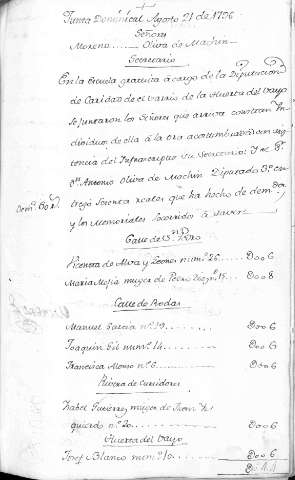 Junta Dominical Agosto 21 de 1796
Señores
Moreno Oliva de Machin
Secretario
En la Escuela gratuita à cargo de la Diputacion
de Caridad de el varrio de la Huerta del Vayo
se juntaron los Señores que arriva constan In
dividuos de ella à la ora acostumbrada con asis
tencia del Infrascripto su Secretario: Y el Sr
Dn Antonio Oliva de Machin Diputado
tregó sesenta reales que ha hecho de
y los Memoriales socorridos à saver
Calle de Sn Pedro
Vicenta de Alva y Leones num.º 26 Do o 6
Maria Mexia muger de Pedro num.º 15 Do o 8
Calle de Rodas
Manuel Garcia n.º 19 Do o 6
Joaquin Gil num.º 14 Do o 6
Francisca Alonso n.º 6 Do o 6
Rivera de Curtidores
Isabel Gutierrez muger de Juan Yz
quierdo n.º 20 Do o 6
Huerta del Vayo
Josef Blanco num.º 10 Do o 6
Do 44